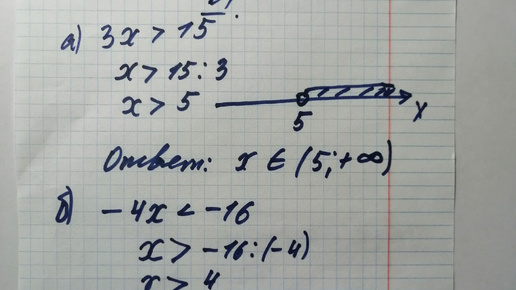 а) 3x > 15
x > 15 : 3
x > 5
5
x
Ответ: x ∈ (5; +∞)
б) -4x < -16
x > -16 : (-4)
x > 4